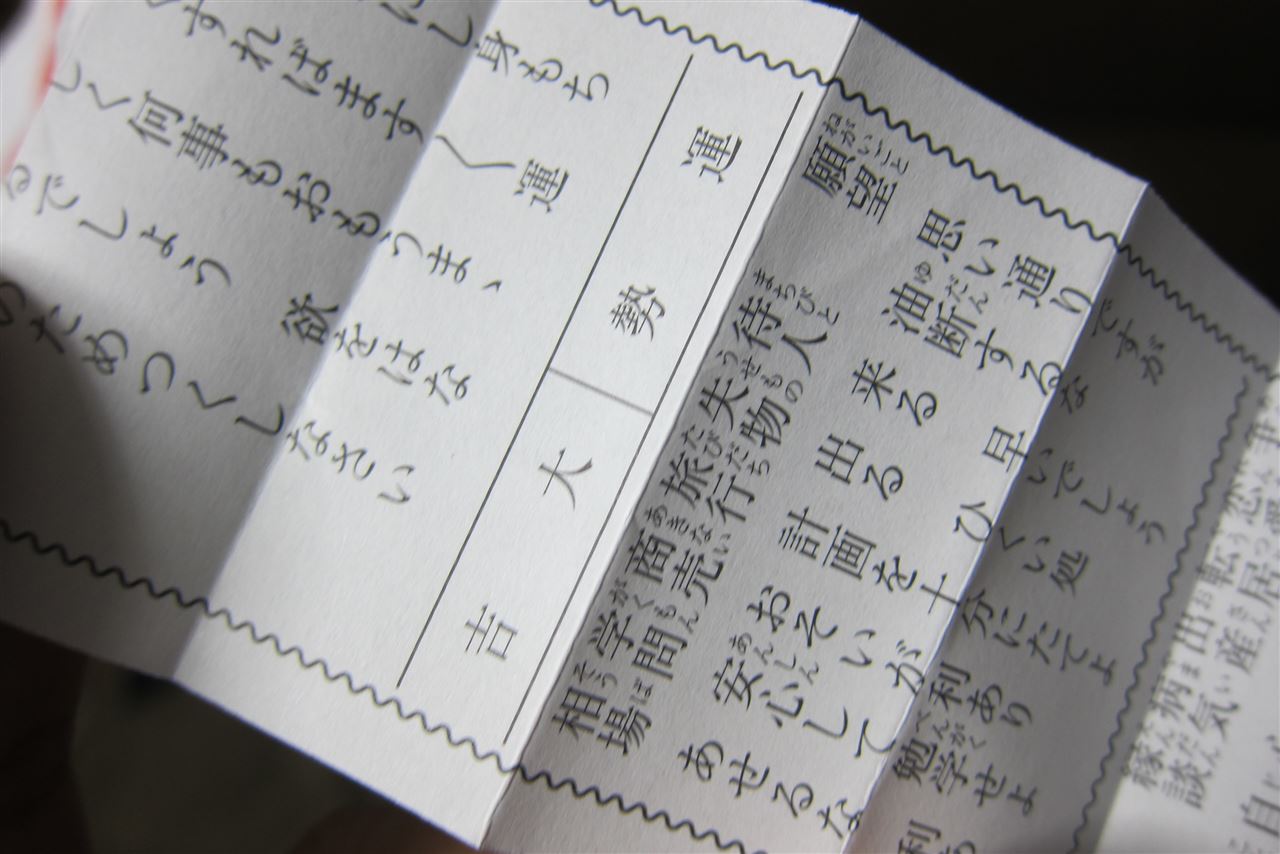 にし身もち
すればます〱運
しく何事もおもうまゝ
るでしょう 欲をはな
のためつくしなさい
運勢 大吉
願望 思い通りですが
油断するな
待人 来る 早いでしょう
失物 出る ひくい処
旅行 計画を十分にたてよ
商売 おそいが利あり
学問 安心して勉学せよ
相場 あせるな 利あ
転居
出産
病気
縁談